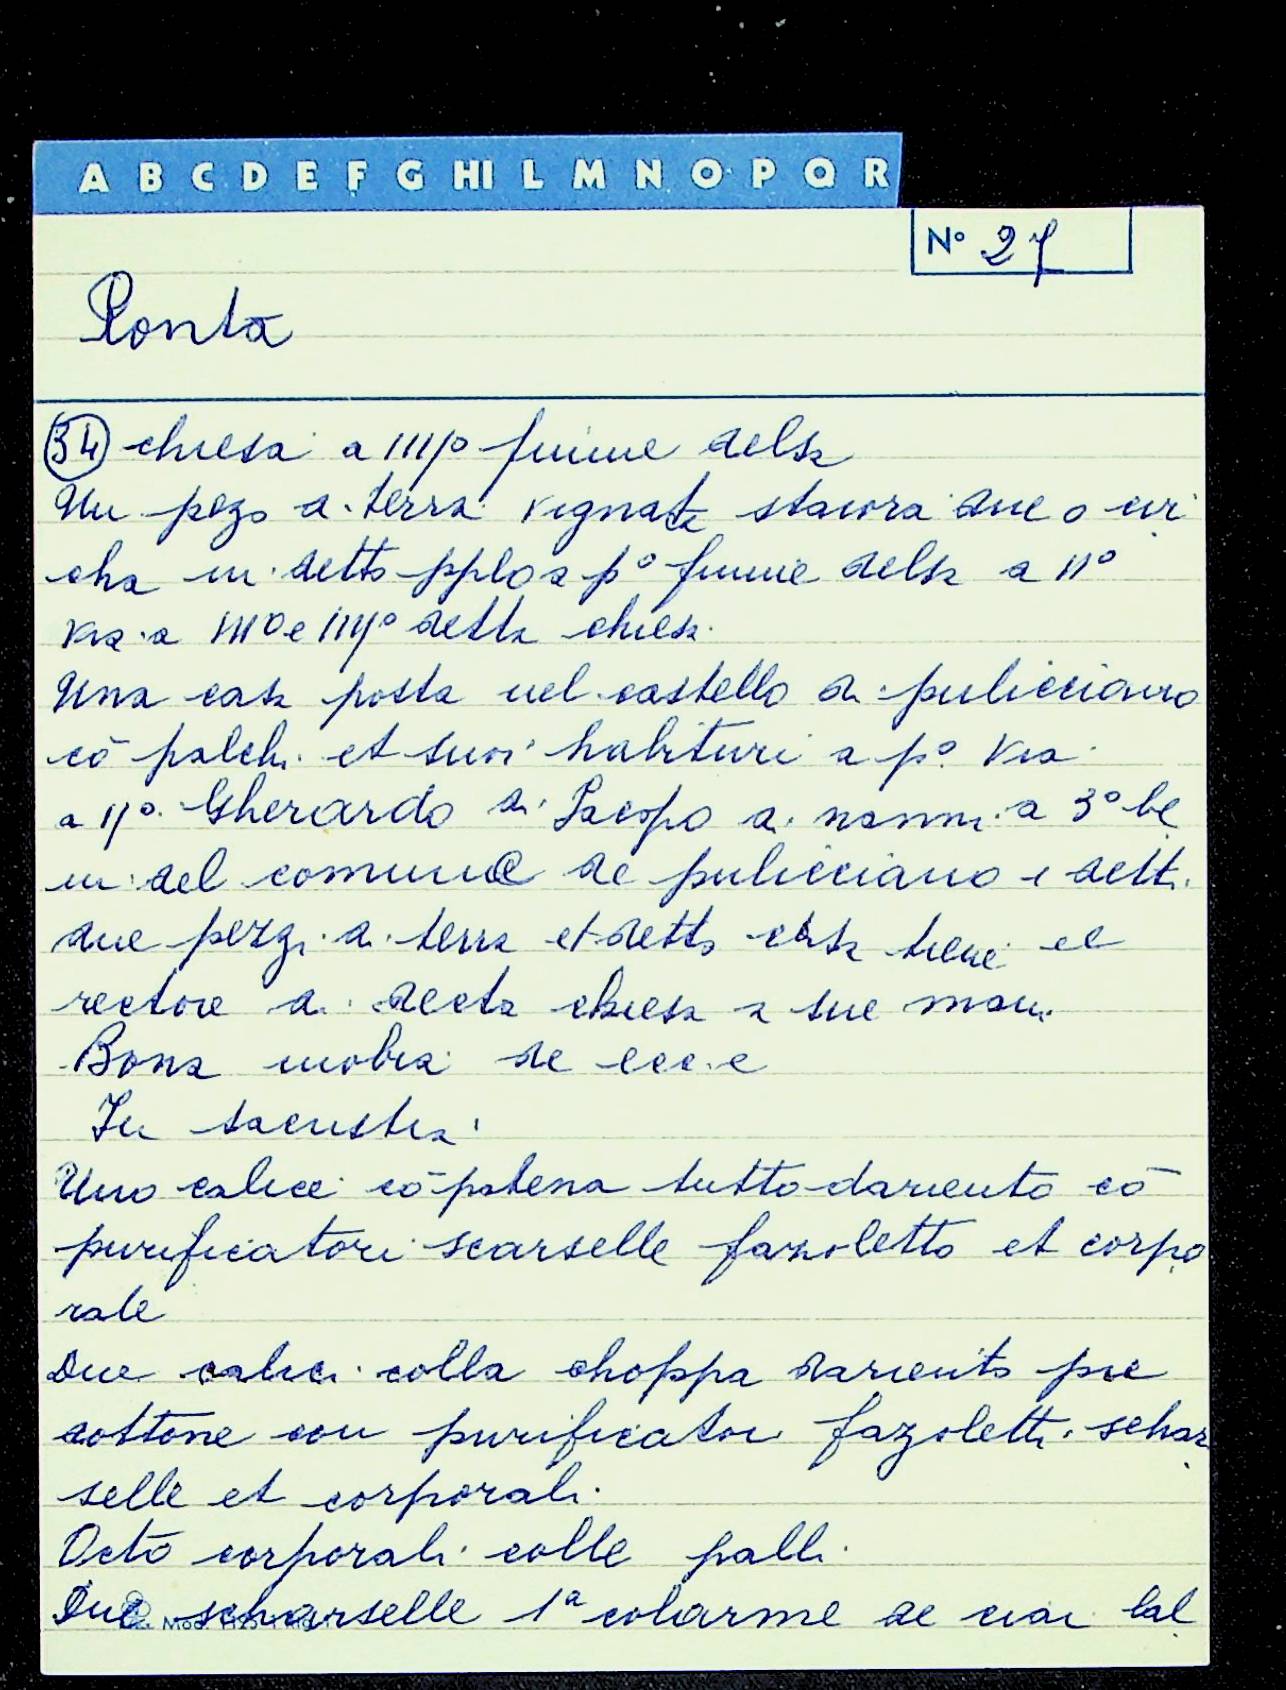 A B C D E F G HI L M N O P Q R
N° 27
Ronta
34 chiesa a IIII° fiume delsa
Un pezo di terra vignata staiora due o cir
cha in detto pplo a p° fiume delsa a II°
via a III° e IIII° detta chiesa.
Una casa posta nel castello di pulicciano
cō palchi et suoi habituri a p° via
a II° Gherardo di Jacopo di nanni a 3° be
ni del comune de pulicciano e detti
due pezzi di terra et detta casa tiene el
rectore di decta chiesa a sue mani.
Bona mobia de
In sacristia
Uno calice cō patena tutto dariento cō
purificatori scarselle fazoletto et corpo
rale
Due calici colla choppa dariento pie
dottone con purificatoi fazoletti schar
selle et corporali.
Octo corporali colle palli.
Due scharselle 1ª colarme de